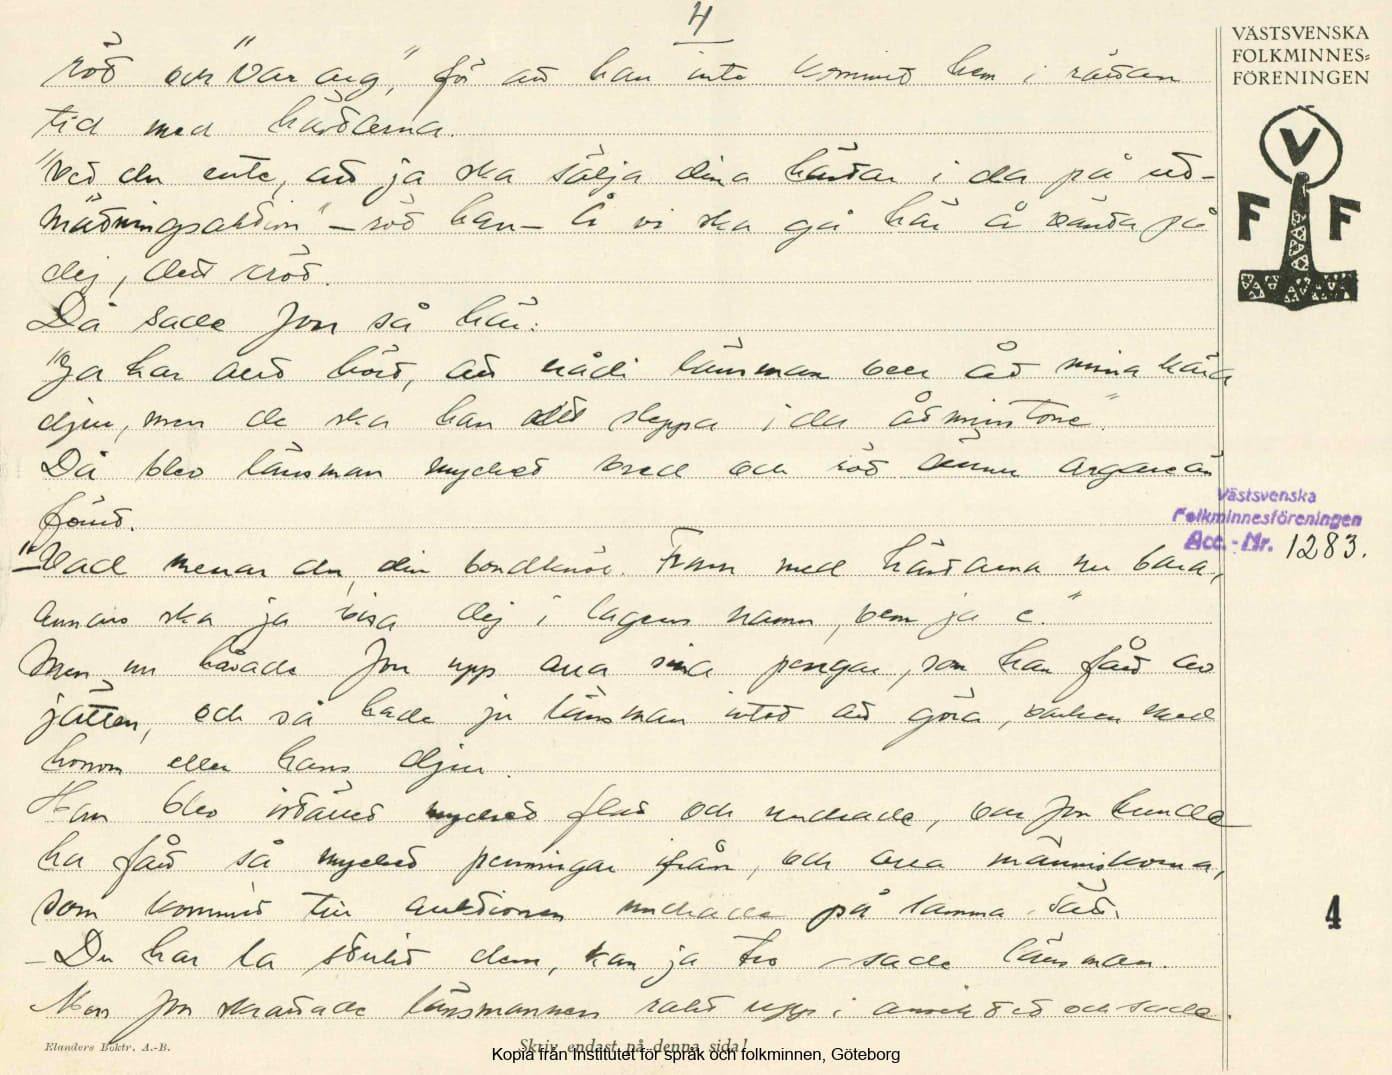 4
VÄSTSVENSKA
FOLKMINNES=
FÖRENINGEN
V
F F
röt och "var arg", för att han inte kommit hem i rättan
tid med hästarna.
"Vet du ente, att ja ska sälja dina hästar i da på ut-
mätningsaktion" – röt han – Å vi ska gå här å vänta på
dej, ditt
Då sade Jon så här:
"Ja har allt hört, att nådi länsman vell åt mina kära
djur, men de ska han allt sleppa i da åtminstone".
Då blev länsman mycket vred och röt ännu argare än
förut.
"Vad menar du, din bondlurk. Fram med hästarna nu bara,
annars ska ja visa dej i lagens namn, vem ja e."
Men nu hävade Jon upp alla sina pengar, som han fått av
jätten, och så hade ju länsman intet att göra, varken med
honom eller hans djur.
Han blev istället mycket flat och undrade, var Jon kunde
ha fått så mycket penningar ifrån, och alla människorna,
som kommit till auktionen undrade på samma sätt.
– Du har la stulit dem, kan ja tro – sade länsman.
Men Jon skrattade länsmannen rakt upp i ansiktet och sade.
Västsvenska
Folkminnesföreningen
Acc. - Nr. 1283.
4
Elanders Boktr. A.-B.
Skriv endast på denna sida!
Kopia från Institutet för språk och folkminnen, Göteborg